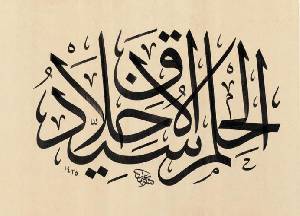 الحلم سيد الاخلاق
١٤٣٥